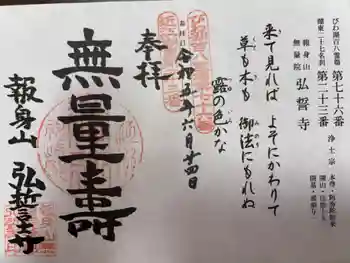 びわ湖百八霊場
湖東二十七名刹
第七十六番
第二十三番
報身山
無量院
弘誓寺
浄土宗
来て見れば よそにかわりて
草も木も 御法にもれぬ
露の色かな
奉拝
令和五年六月廿四日
無量壽
報身山 弘誓寺